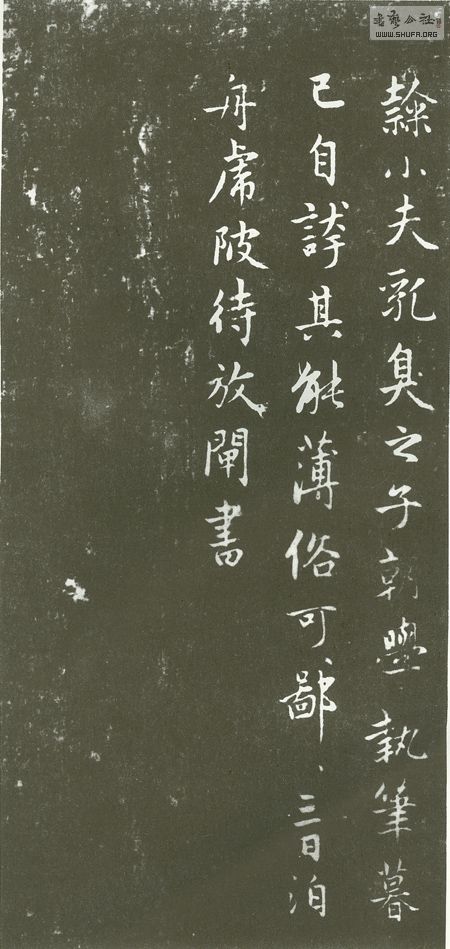 隸小夫乳臭之子朝學執筆暮
已自誇其能薄俗可、鄙、三日泊
舟虎陂待放閘書
書藝公社
WWW.SHUFA.ORG